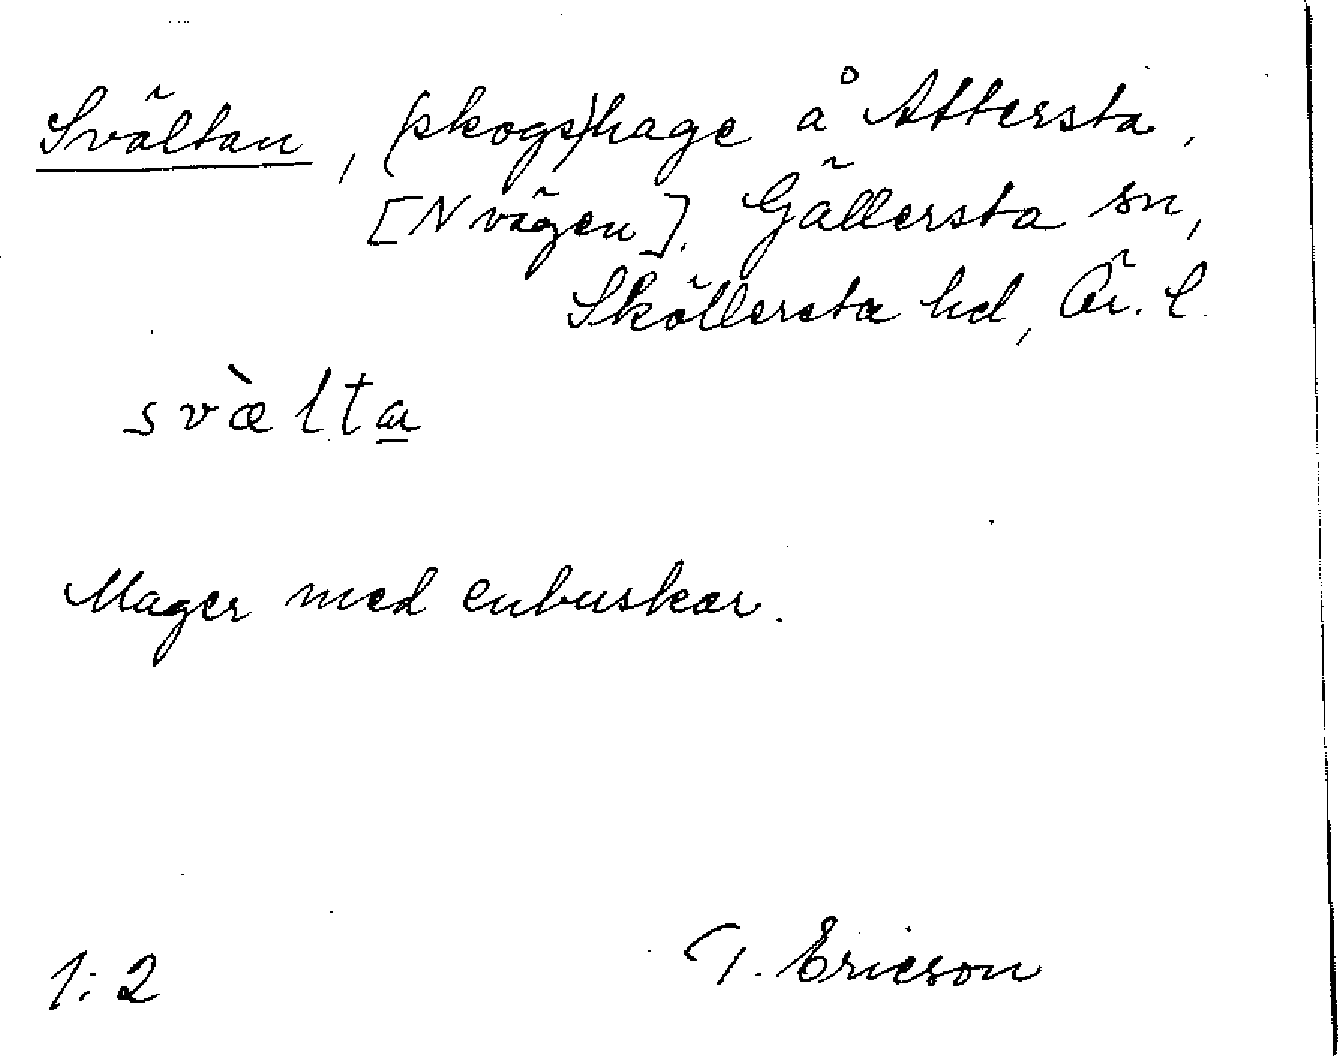 Svältan, (skogs)hage å Attersta,
[N vägen]. Gällersta sn,
Sköllersta hd, Ör. l.
svæ̀lta
Mager med enbuskar.
1:2 T. Ericson